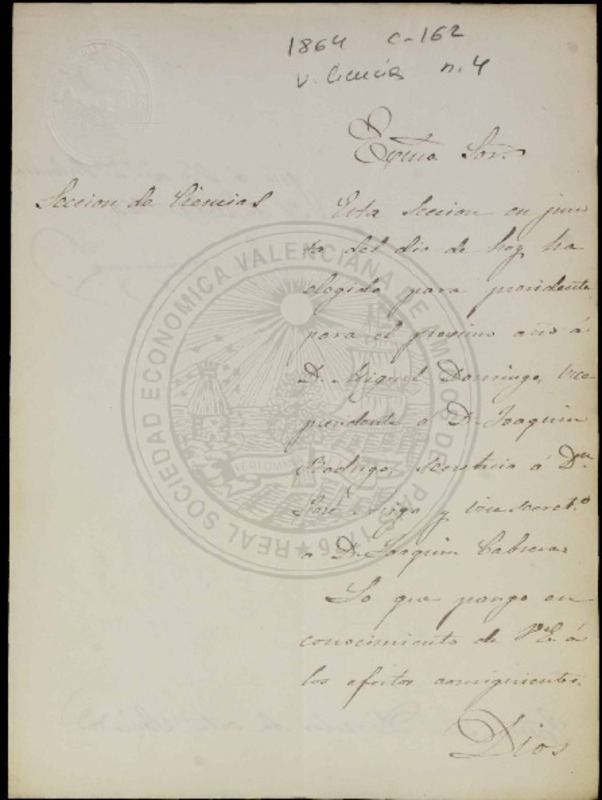 1864 C-162
V. Ciencias n. 4
Exmo Sor.
Seccion de Ciencias
Esta Seccion en jun
ta del dia de hoy, ha
elegido para presidente
para el proximo año á
D. Miguel Domingo, Vice
presidente á D. Joaquin
Rodrigo, Secretario á Dn
José y Vice Secreto
a Dn Joaquin Cabrera
Lo que pongo en
conocimiento de V.E. á
los efectos consiguientes.
Dios
REAL SOCIEDAD ECONOMICA VALENCIANA DE AMIGOS DEL PAIS 1776